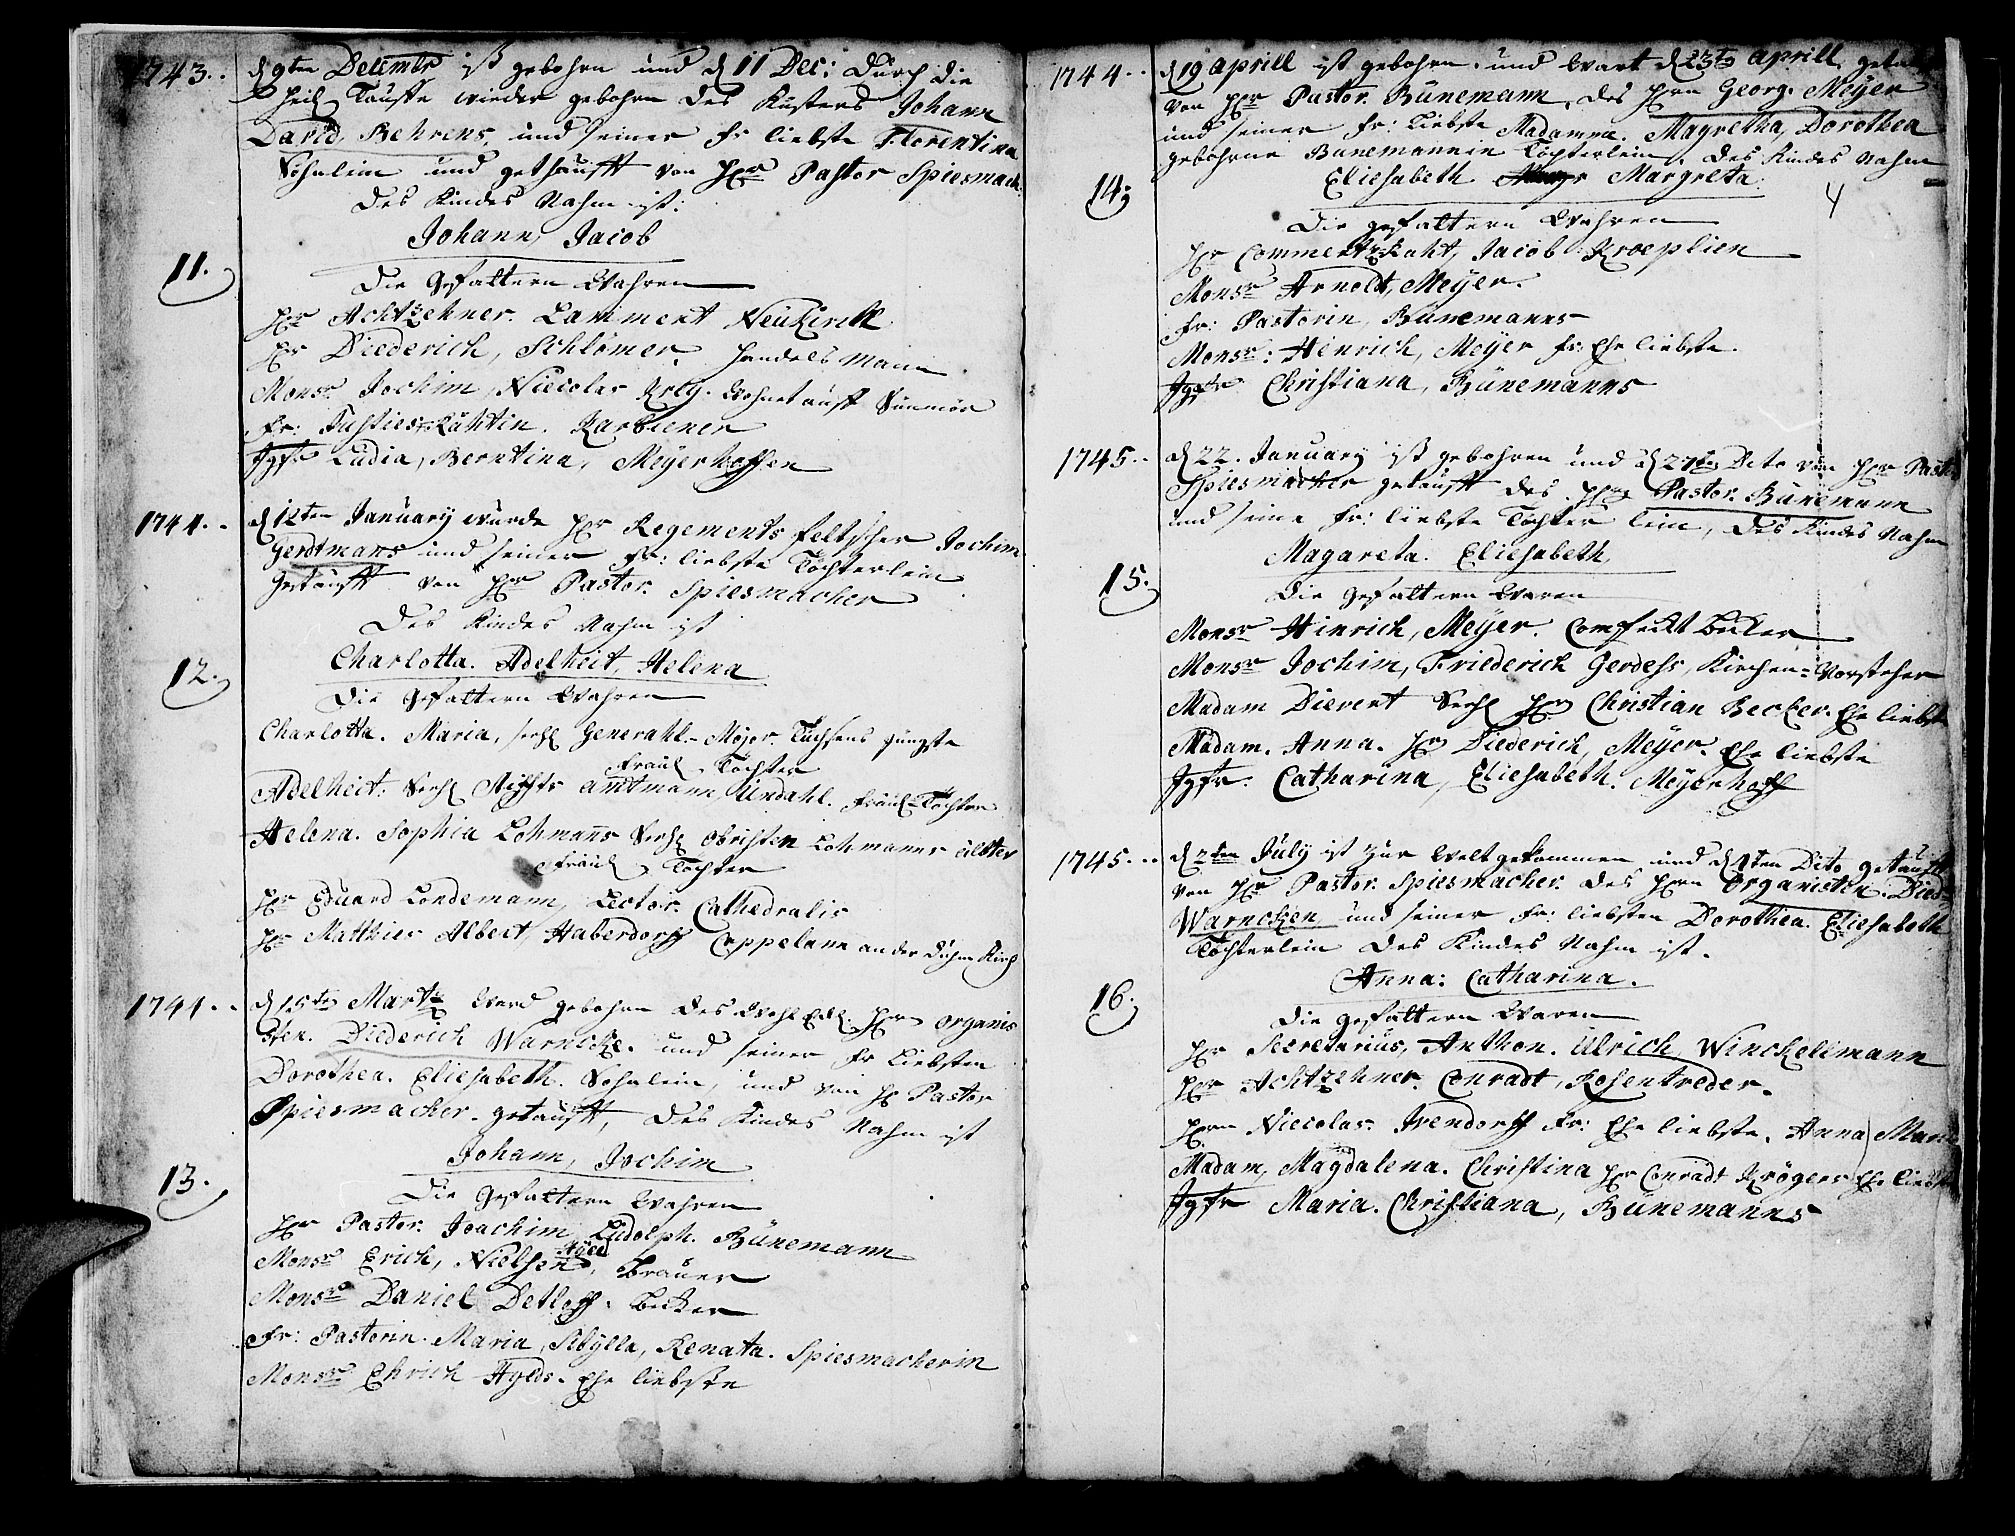 1743.. d 9ten Decembr ist gebohren und d 11 Dec: durch die
heil Tauffe wieder gebohren des Küsters Johann
David Behrens, und seiner fr liebste Florentina
Söhnlein und gethaufft von Hr Pastor Spiesmach:
des Kindes Nahm ist:
11. Johann, Jacob
Die Gefattern Wahren
Hr Achtzehner. Lammert Neukirck
Hr Diederich, Schlömer, Handels Mann
Monsr Jochim, Niecolas Wohnet auff Sunmör
Fr: Justiesrähtin. Karbiener
Jgfr Ludia, Berntina, Meyerhoffen
1744.. d 12ten January wurde Hr Regements feltscher Jochim
Gerdtmans und seiner Fr: liebste Töchterlein
getaufft von Hr Pastor. Spiesmacher
Des Kindes Nahm ist
12. Charlotta. Adelheit, Helena
Die Gefattern Wahren
Charlotta. Maria, sehl Generahl-Mejor. Tüchsens jüngste
Fräul Tochter
Adelheit. Sehl Stiffts amtmann, Undahl. Fräul-Tochter
Helena. Sophia Lohmanns Sehl Obristen Lohmanns älster
Fräul Tochter
Hr Eduard Londemann, Lector. Cathedralis
Hr Matthies Albert, Haberdorff Cappelann an der Duhm Kirch
1744.. d 15te Martz Ward gebohren des Wohl Edl. Hrn Organis
sten. Diederich Warncke. und seiner Fr Liebsten
Dorothea. Eliesabeth. Söhnlein, und von H Pastor
Spiesmacher. getaufft, des Kindes Nahm ist
13. Johann, Jochim
Die Gefattern Wahren
Hr Pastor. Joachim Ludolph. Bünemann
Monsr Erich, Nielsen, Brauer
Monsr Daniel Detloff. Becker
Fr: Pastorin. Maria, Sibylla, Renata. Spiesmacherin
Monsr Ehrich Hylds. Ehe liebste
1744.. d 19 Aprill ist gebohren. und Wart d 23te Aprill getau
von Hr Pastor. Bünemann, des Hrn Georg. Meyer
und seiner Fr: Liebste Madamme. Magretha, Dorothea
gebohrne Bünemannin Töchterlein. des Kindes Nahm
14. Eliesabeth Margreta 4
Die Gefattern Wahren
Hr Commertz-Raht, Jacob Kroeplien
Monsr Arnolt, Meyer.
Fr: Pastorin, Bünemanns
Monsr: Hinrich, Meyer fr: Ehe liebste.
Jgfr Christiana, Bünemanns
1745.. d 22. January ist gebohren und d 27te Dito von Hr Past
Spiesmacher getaufft des Hrn Pastor. Bünemann
und seine Fr: liebste Töchter lein, des Kindes Nahm
Magareta. Eliesabeth,
15. Die Gefattern Waren
Monsr Hinrich, Meyer. Comfeckt becker
Monsr Jochim, Friederich Gerdess, Kirchen-Vorsteher
Madam Dievert Sehl Hr Christian Becker. Ehe liebste
Madam. Anna. Hr Diederich, Meyer. Ehe liebste
Jgfr. Catharina, Eliesabeth. Meyerhoff
1745... d 2ten July ist zur Welt gekommen und d 4ten Dito getaufft
von Hr Pastor. Spiesmacher. des Hrn Organisten. Died
Warncken, und seiner Fr: liebsten Dorothea. Eliesabeth
Töchterlein des Kindes Nahm ist.
Anna: Catharina.
16. Die Gefattern Waren
Hr Secretarius, Anthon. Ulrich Winckelmann
Hr Achtzehner. Conradt, Rosentreder.
Hrn Niecolas. Irendorff Fr: Ehe liebste. Anna Mari
Madam, Magdalena. Christina Hr Conradt Krögers Ehe liebst
Jgfr Maria. Christiana, Bünemanns